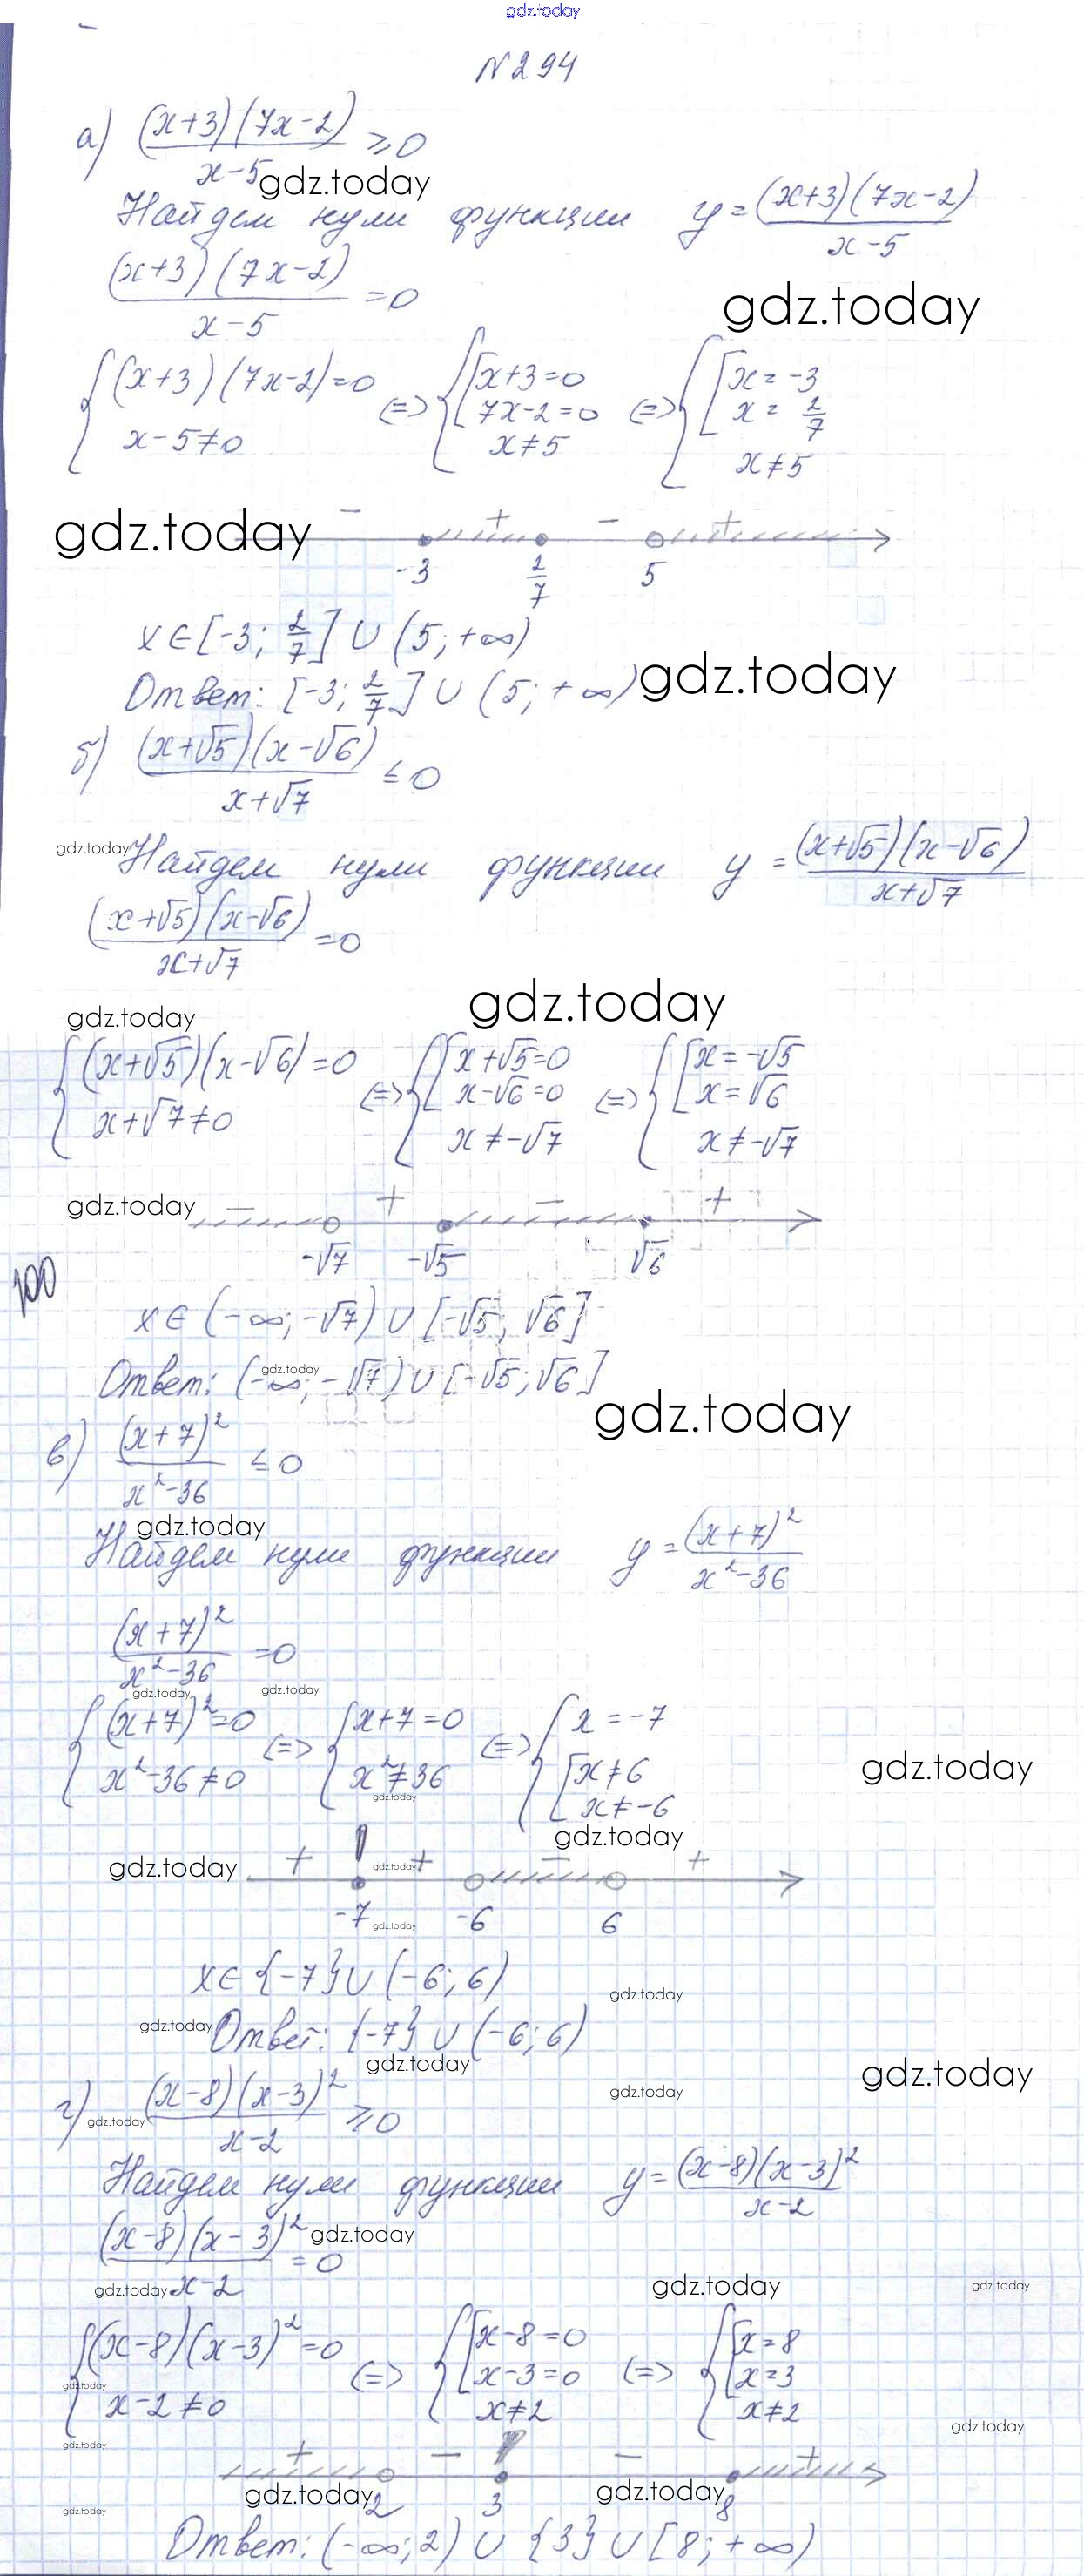 gdz.today
N294
а) (x+3)(7x-2)/(x-5) ≥ 0
gdz.today
Найдем нули функции y = (x+3)(7x-2)/(x-5)
(x+3)(7x-2)/(x-5) = 0
gdz.today
{(x+3)(7x-2)=0; x-5≠0 <=> {[x+3=0; 7x-2=0; x≠5 <=> {[x=-3; x=2/7; x≠5
gdz.today
- + - +
-3 2/7 5
x∈[-3; 2/7] ∪ (5; +∞)
Ответ: [-3; 2/7] ∪ (5; +∞) gdz.today
б) (x+√5)(x-√6)/(x+√7) ≤ 0
gdz.today Найдем нули функции y = (x+√5)(x-√6)/(x+√7)
(x+√5)(x-√6)/(x+√7) = 0
gdz.today gdz.today
{(x+√5)(x-√6)=0; x+√7≠0 <=> {[x+√5=0; x-√6=0; x≠-√7 <=> {[x=-√5; x=√6; x≠-√7
gdz.today - + - +
-√7 -√5 √6
100
x∈(-∞; -√7) ∪ [-√5; √6]
Ответ: (-∞; -√7) ∪ [-√5; √6]
gdz.today
gdz.today
в) (x+7)²/(x²-36) ≤ 0
gdz.today
Найдем нули функции y = (x+7)²/(x²-36)
(x+7)²/(x²-36) = 0
gdz.today gdz.today
{(x+7)²=0; x²-36≠0 <=> {x+7=0; x²≠36 <=> {x=-7; [x≠6; x≠-6
gdz.today
gdz.today
gdz.today
gdz.today + gdz.today + - +
-7 gdz.today -6 6
x∈{-7}∪(-6; 6)
gdz.today
gdz.today Ответ: {-7} ∪ (-6; 6)
gdz.today
gdz.today
gdz.today
г) gdz.today (x-8)(x-3)²/(x-2) ≥ 0
Найдем нули функции y = (x-8)(x-3)²/(x-2)
(x-8)(x-3)²/(x-2) = 0 gdz.today
gdz.today gdz.today gdz.today
{(x-8)(x-3)²=0; x-2≠0 <=> {[x-8=0; x-3=0; x≠2 <=> {[x=8; x=3; x≠2
gdz.today
gdz.today
gdz.today
+ - - +
gdz.today 2 3 gdz.today 8
gdz.today
Ответ: (-∞; 2) ∪ {3} ∪ [8; +∞)